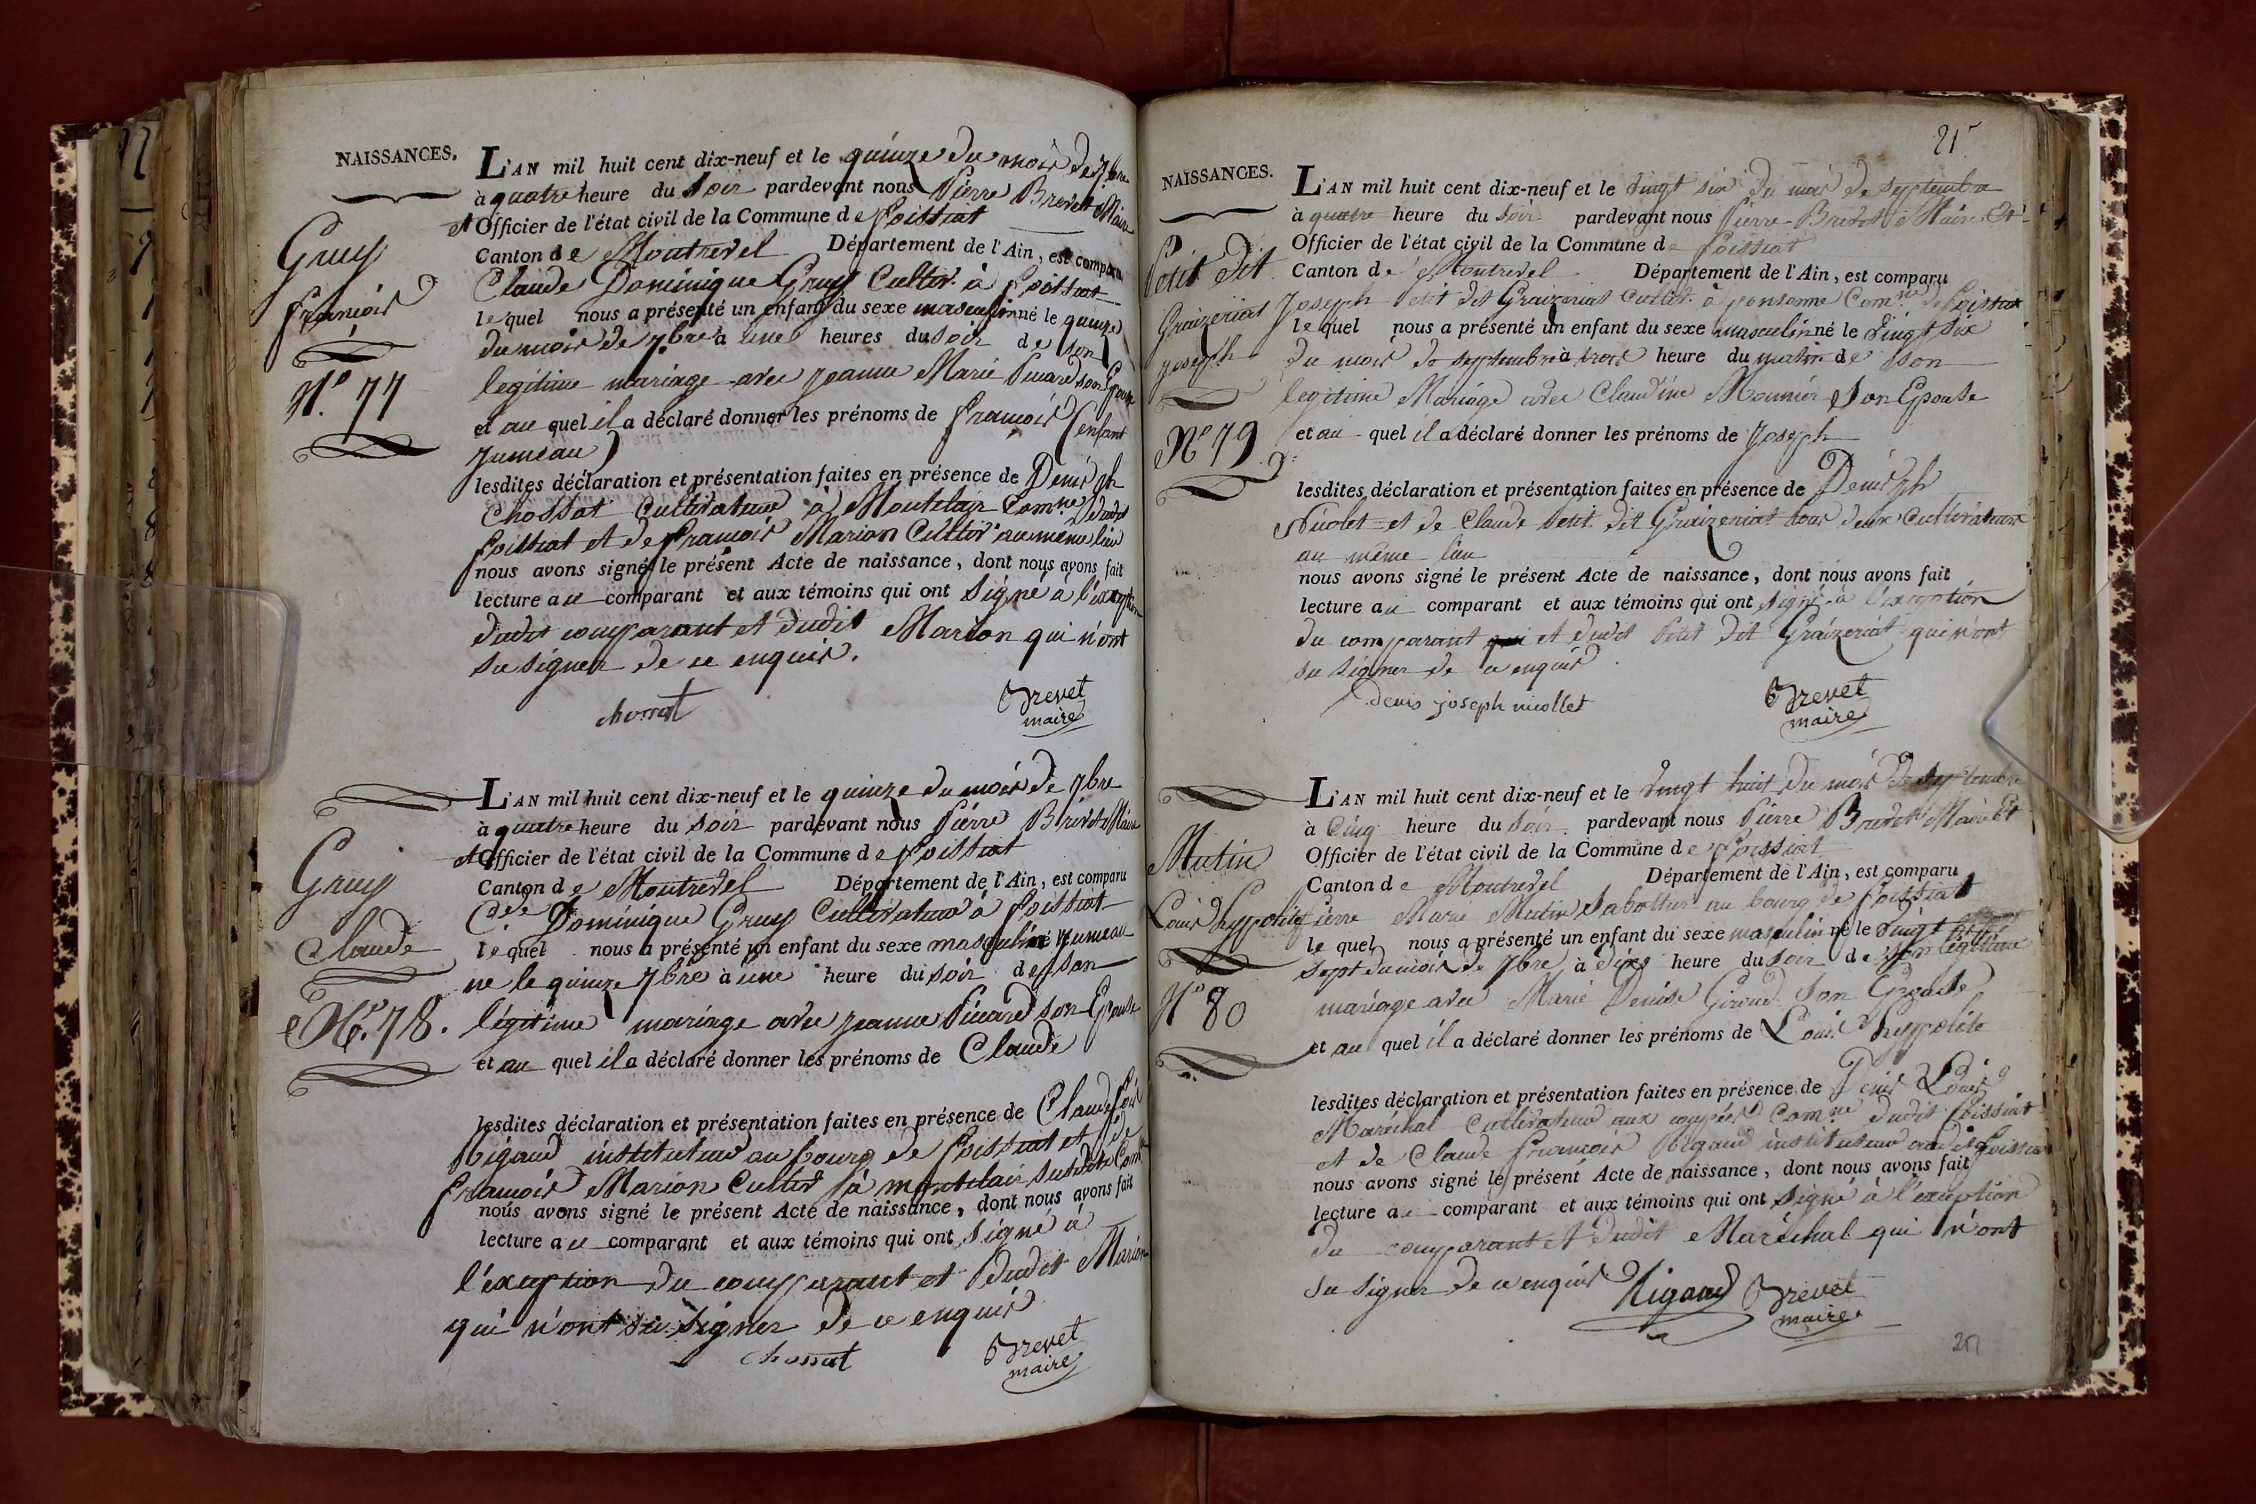 NAISSANCES.
L'AN mil huit cent dix-neuf et le quinze du mois de 7bre
à quatre heure du soir pardevant nous Pierre Brevet Maire
et Officier de l'état civil de la Commune de Foissiat
Canton de Montrevel Département de l'Ain, est comparu
Claude Dominique Gruy Cultivr. à Foissiat
lequel nous a présenté un enfant du sexe masculin né le quinze
du mois de 7bre à une heures du soir de son
legitime mariage avec jeanne Marie Picard son Epouse
et au quel il a déclaré donner les prénoms de françois (enfant
jumeau)
lesdites déclaration et présentation faites en présence de Denis jh
Chossat Cultivateur à Montclair Comne dudit
foissiat et de françois Marion Cultivr au même lieu
nous avons signé le présent Acte de naissance, dont nous avons fait
lecture au comparant et aux témoins qui ont signé à l'exception
dudit comparant et dudit Marion qui n'ont
su signer de ce enquis.
chossat
Brevet
maire
Gruy
françois
N.º 77
L'AN mil huit cent dix-neuf et le quinze du mois de 7bre
à quatre heure du soir pardevant nous Pierre Brevet Maire
et Officier de l'état civil de la Commune de Foissiat
Canton de Montrevel Département de l'Ain, est comparu
Cde. Dominique Gruy Cultivateur à foissiat
lequel nous a présenté un enfant du sexe masculin jumeau
ne le quinze 7bre à une heure du soir de son
légitime mariage avec jeanne Picard son Epouse
et au quel il a déclaré donner les prénoms de Claude
lesdites déclaration et présentation faites en présence de Claude
Rigaud instituteur au bourg de Foissiat et de
françois Marion Cultivr à montclair susdite Comne
nous avons signé le présent Acte de naissance, dont nous avons fait
lecture au comparant et aux témoins qui ont signé à
l'exception du comparant et dudit Marion
qui n'ont su signer de ce enquis
chossat
Brevet
maire
Gruy
Claude
Nº. 78.
21
NAISSANCES.
L'AN mil huit cent dix-neuf et le vingt six du mois de septembre
à quatre heure du soir pardevant nous Pierre Brevet Maire Et
Officier de l'état civil de la Commune de Foissiat
Canton de Montrevel Département de l'Ain, est comparu
Joseph Petit dit Graizeriat Cultivr. à Comne de foissiat
lequel nous a présenté un enfant du sexe masculin né le vingt six
du mois de septembre à trois heure du matin de son
legitime Mariage avec Claudine Monnier Son Epouse
et au quel il a déclaré donner les prénoms de Joseph
lesdites déclaration et présentation faites en présence de Denis jh
Nicolet et de Claude Petit dit Graizeriat tous deux Cultivateurs
au même lieu
nous avons signé le présent Acte de naissance, dont nous avons fait
lecture au comparant et aux témoins qui ont signé à l'exception
du comparant qui et dudit Petit dit Graizeriat qui n'ont
su signer de ce enquis
denis joseph nicollet
Brevet
maire
Petit dit
Graizeriat
joseph
Nº 79
L'AN mil huit cent dix-neuf et le vingt huit du mois de septembre
à cinq heure du soir pardevant nous Pierre Brevet Maire Et
Officier de l'état civil de la Commune de Foissiat
Canton de Montrevel Département de l'Ain, est comparu
Pierre Marie Mutin Sabottier au bourg de foissiat
lequel nous a présenté un enfant du sexe masculin né le vingt
sept du mois de 7bre à dix heure du soir de son légitime
mariage avec Marie Denise Giroud Son Epouse
et au quel il a déclaré donner les prénoms de Louis hyppolite
lesdites déclaration et présentation faites en présence de Denis Louis
Maréchal Cultivateur aux Comne dudit foissiat
et de Claude françois Rigaud instituteur audit foissiat
nous avons signé le présent Acte de naissance, dont nous avons fait
lecture au comparant et aux témoins qui ont signé à l'exception
du comparant et dudit Maréchal qui n'ont
su signer de ce enquis
Rigaud
Brevet
maire
Mutin
Louis hyppolite
Nº 80